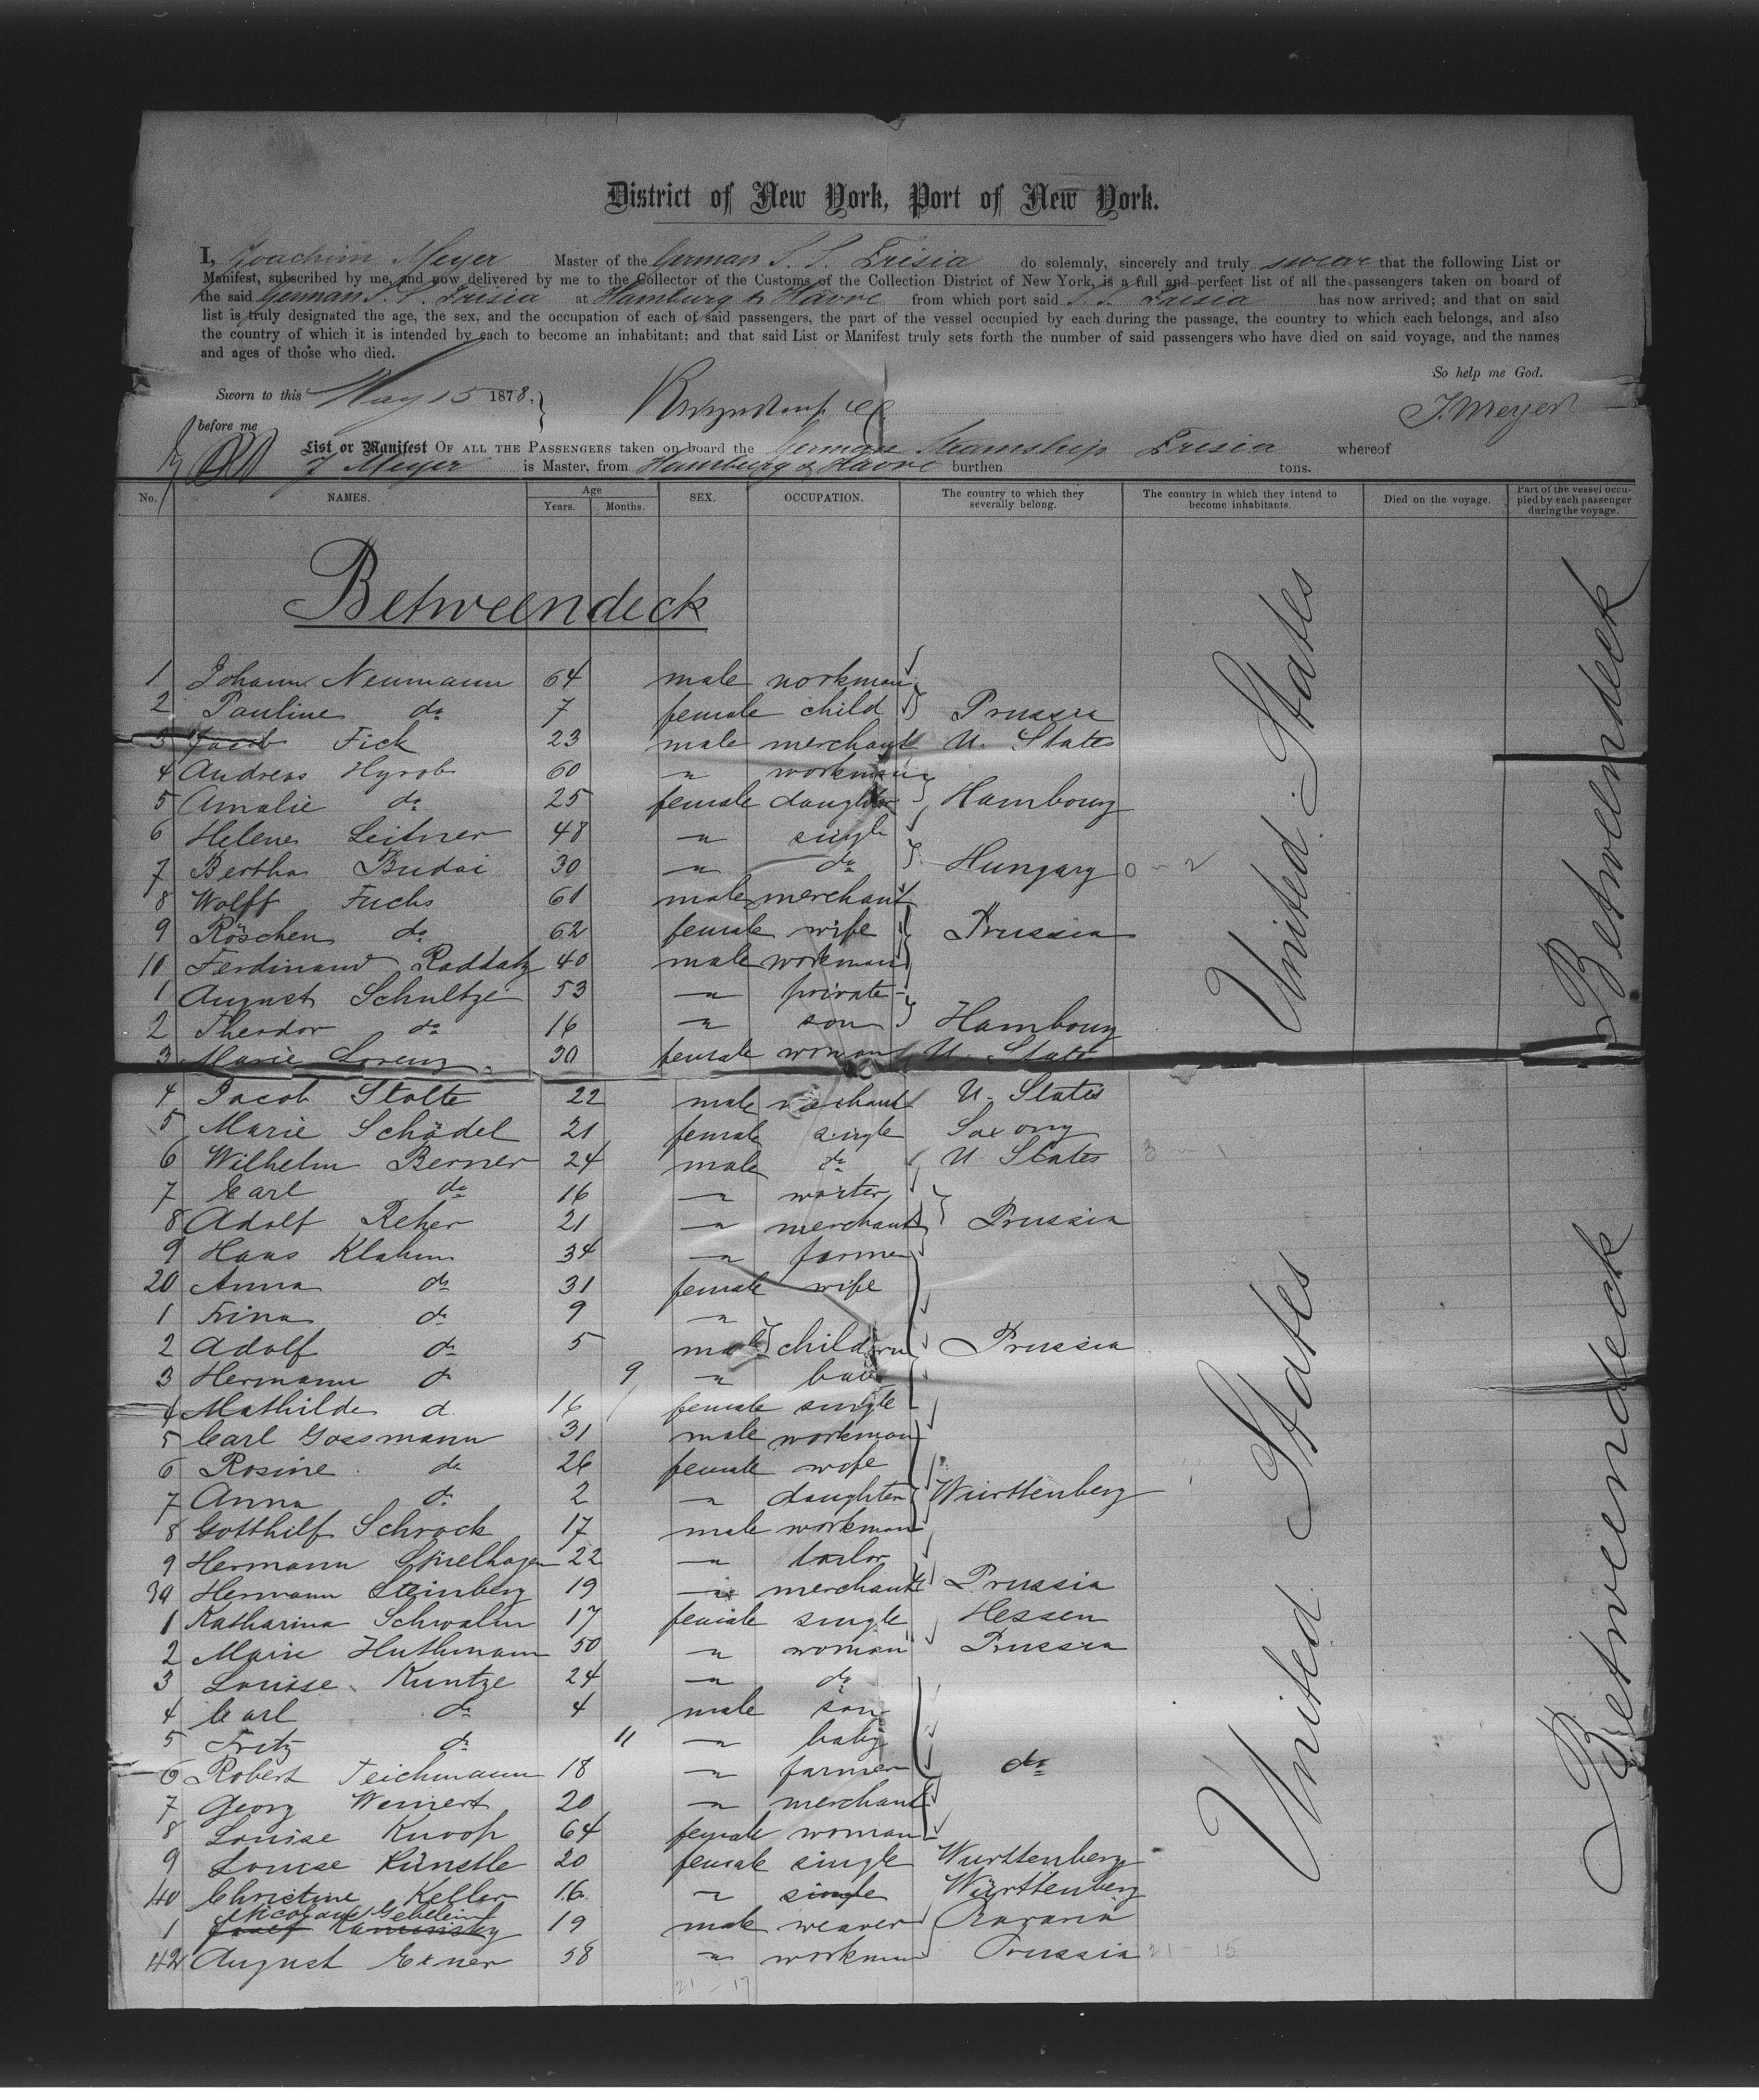 District of New York, Port of New York.
I, Joachim Meyer Master of the German S. S. Frisia do solemnly, sincerely and truly swear that the following List or
Manifest, subscribed by me, and now delivered by me to the Collector of the Customs of the Collection District of New York, is a full and perfect list of all the passengers taken on board of
the said German S. S. Frisia at Hamburg & Havre from which port said S. S. Frisia has now arrived; and that on said
list is truly designated the age, the sex, and the occupation of each of said passengers, the part of the vessel occupied by each during the passage, the country to which each belongs, and also
the country of which it is intended by each to become an inhabitant; and that said List or Manifest truly sets forth the number of said passengers who have died on said voyage, and the names
and ages of those who died.
So help me God.
Sworn to this May 15 1878,
J. Meyer
before me
List or Manifest OF ALL THE PASSENGERS taken on board the German Steamship Frisia whereof
J Meyer is Master, from Hamburg & Havre burthen tons.
No. NAMES. Age Years. Months. SEX. OCCUPATION. The country to which they severally belong. The country in which they intend to become inhabitants. Died on the voyage. Part of the vessel occupied by each passenger during the voyage.
Betweendeck
1 Johann Neumann 64 male workman
2 Pauline do 7 female child Prussia
3 Jacob Fick 23 male merchant U. States
4 Andreas Hyrob 60 " workman
5 Amalie do 25 female daughter Hambourg
6 Helene Leitner 48 " single
7 Bertha Budai 30 " do Hungary 0 - 2
8 Wolff Fuchs 61 male merchant
9 Röschen do 62 female wife Prussia
10 Ferdinand Raddatz 40 male workman
1 August Schultze 53 " private
2 Theodor do 16 " son Hambourg
3 Marie Lorenz 30 female woman U. States
4 Jacob Stolte 22 male merchant U. States
5 Marie Schödel 21 female single Saxony
6 Wilhelm Berner 24 male do U States 3 - 1
7 Carl do 16 " waiter
8 Adolf Reher 21 " merchant Prussia
9 Hans Klahm 34 " farmer
20 Anna do 31 female wife
1 Trina do 9 "
2 Adolf do 5 male children Prussia
3 Hermann do 9 "
4 Mathilde d 16 female single
5 Carl Gossmann 31 male workman
6 Rosine do 26 female wife
7 Anna do 2 " daughter Wurttenberg
8 Gotthilf Schrock 17 male workman
9 Hermann Spielhagen 22 " tailor
30 Hermann Steinberg 19 " merchant Prussia
1 Katharina Schwalm 17 female single Hessen
2 Marie Huthmann 50 " woman Prussia
3 Louise Kuntze 24 " do
4 Carl do 4 male son
5 Fritz do 11 " baby
6 Robert Teichmann 18 " farmer do
7 Georg Weinert 20 " merchant
8 Louise Knoop 64 female woman
9 Louise Künstle 20 female single Wurttenberg
40 Christine Keller 16 " single Württenberg
Nicolaus Gebelein
1 Josef 19 male weaver Bavaria
42 August Exner 58 " workman Prussia 21 - 15
21 - 17
United States
United States
Betweendeck
Betweendeck